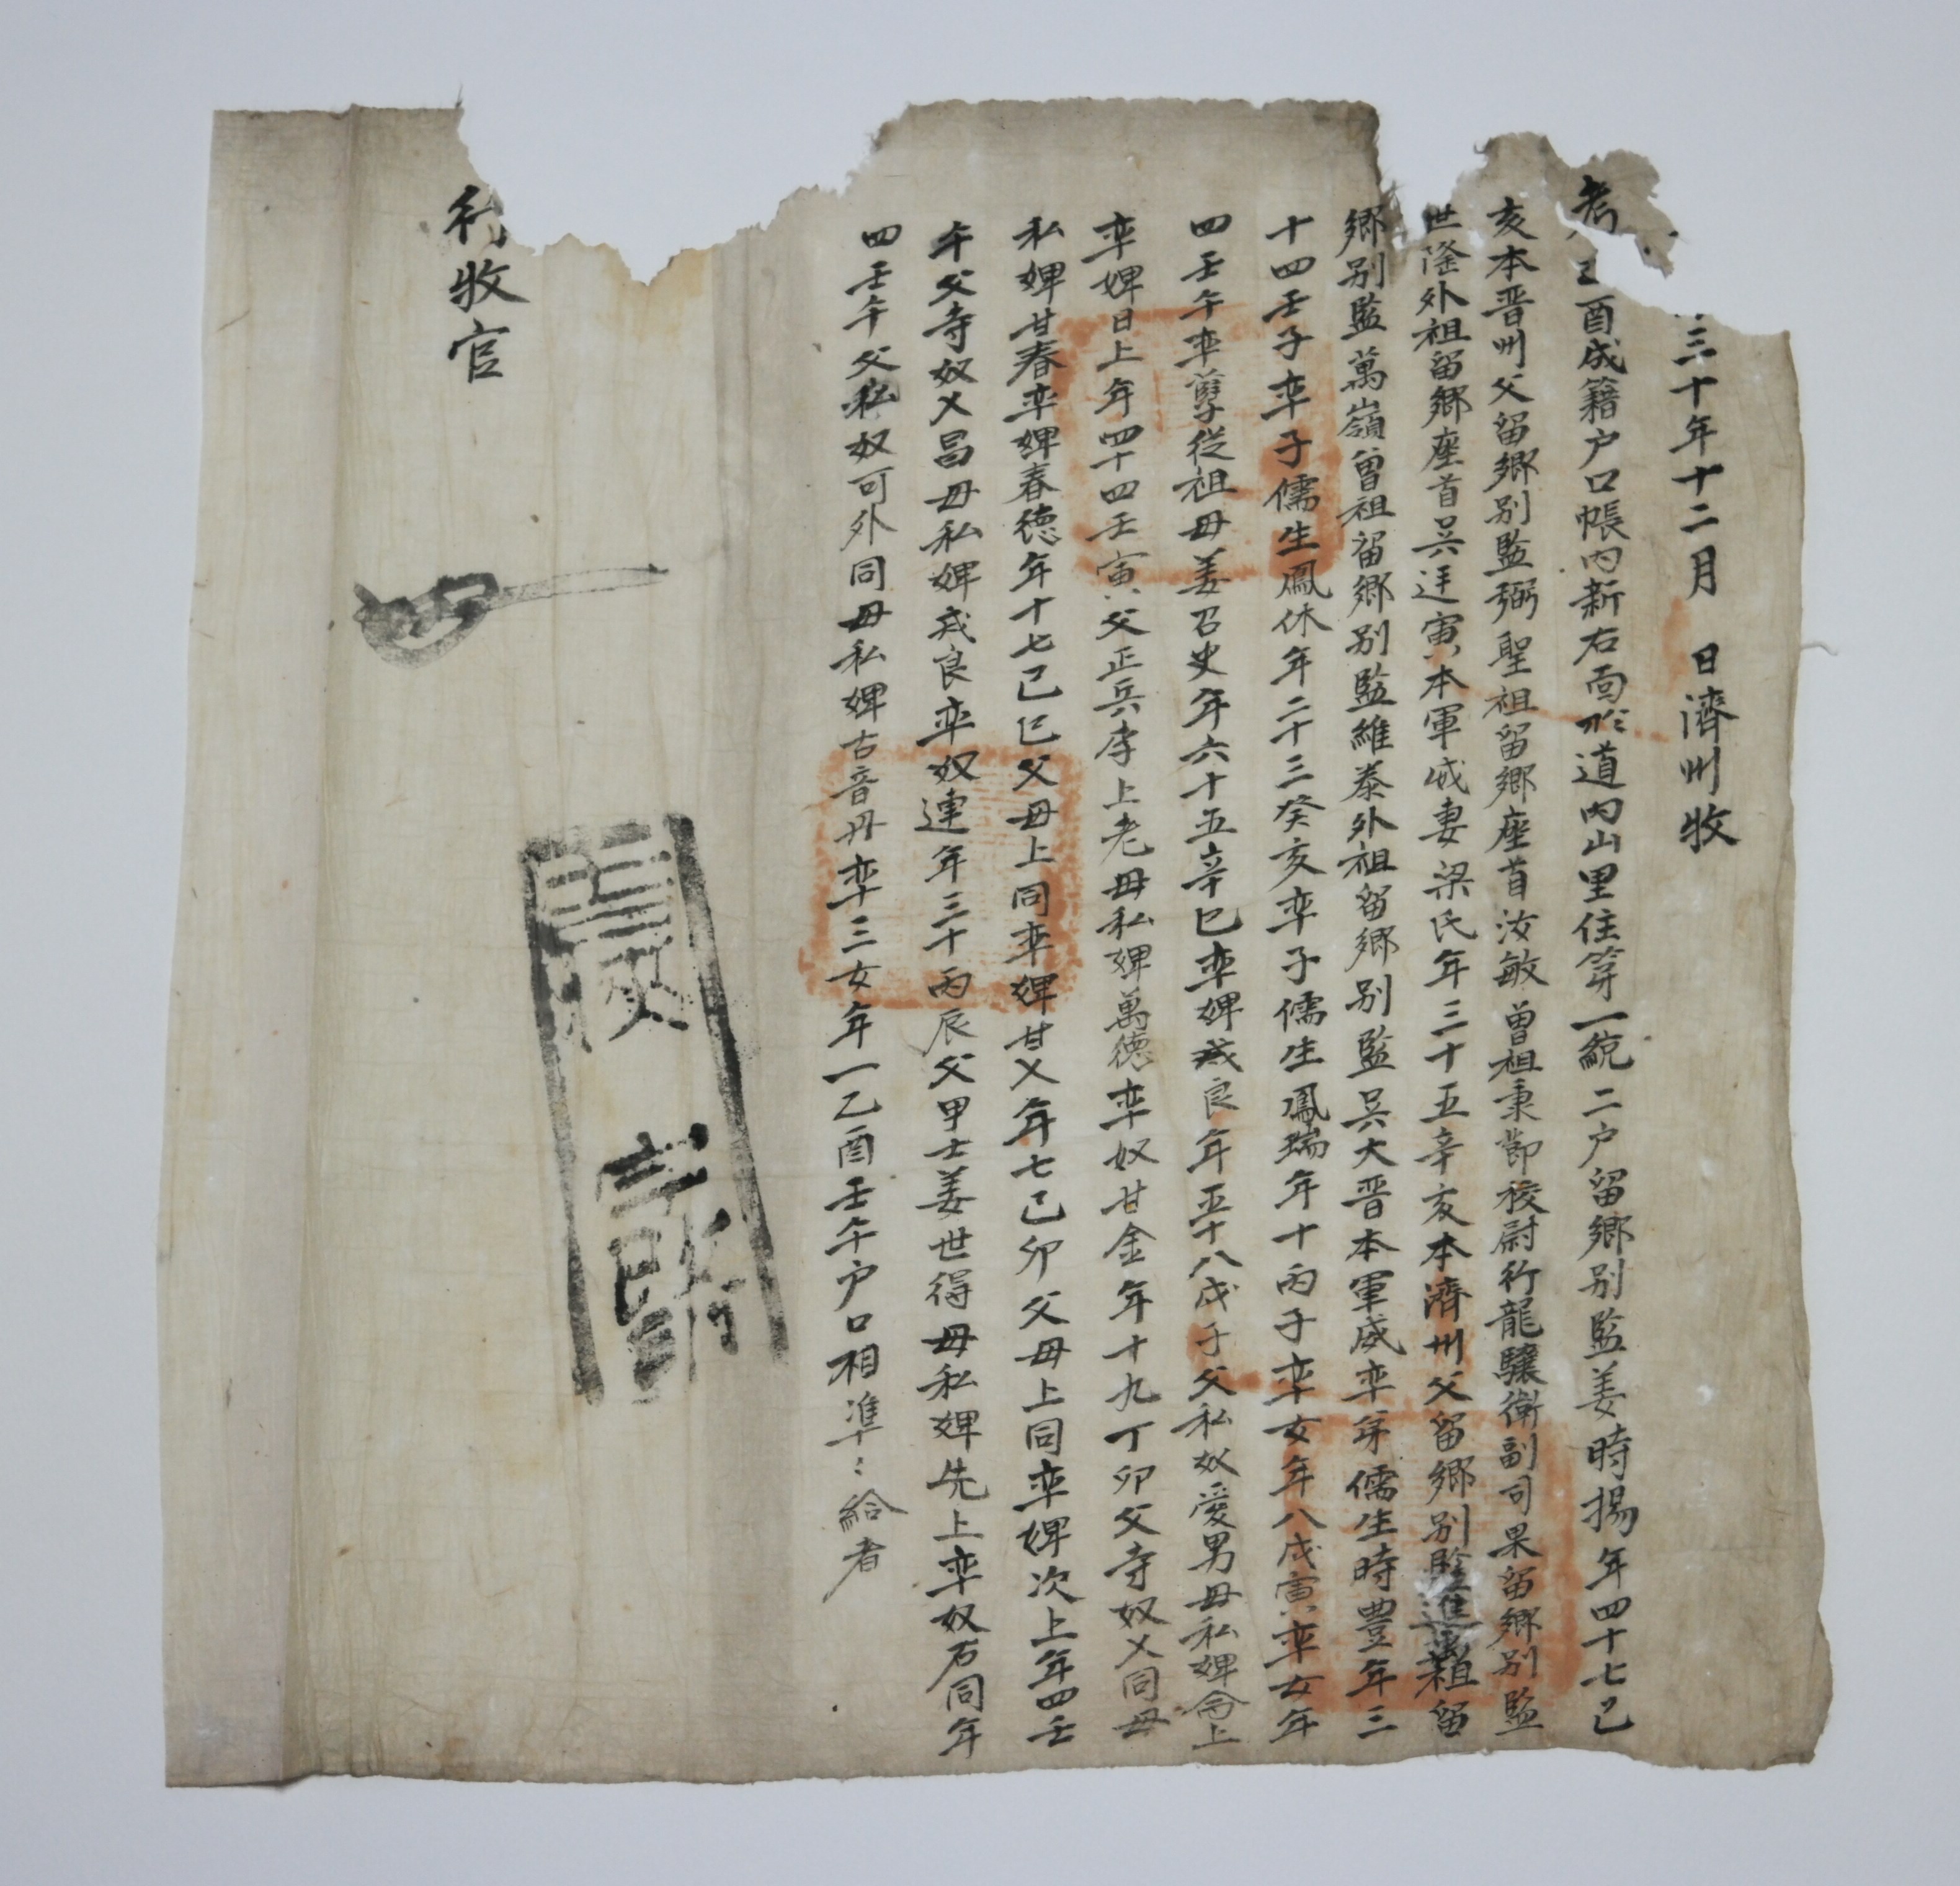 三十年十二月 日濟州牧
考 酉成籍户口帳內新右面於道內山里住第一統二户留鄉别監姜時揚年四十七己
亥本晋州父留鄉别監弼聖祖留鄉座首汝敏曾祖秉節校尉行龍驤衛副司果留鄉别監
世隆外祖留鄉座首吳廷寅本軍威妻梁氏年三十五辛亥本濟州父留鄉别監進 祖留
鄉别監萬嶺曾祖留鄉别監維泰外祖留鄉别監吳大晋本軍威率弟儒生時豊年三
十四壬子率子儒生鳳休年二十三癸亥率子儒生鳳瑞年十丙子率女年八戊寅率女年
四壬午率孽從祖母姜召史年六十五辛巳率婢戒良年五十八戊子父私奴愛男母私婢命上
率婢日上年四十四壬寅父正兵李上老母私婢萬德率奴甘金年十九丁卯父寺奴乂同母
私婢甘春率婢春德年十七己巳父母上同率婢甘乂年七己卯父母上同率婢次上年四壬
午父寺奴乂昌母私婢戒良率奴連年三十丙辰父甲士姜世得母私婢先上率奴石同年
四壬午父私奴可外同母私婢古音丹率三女年一乙酉壬午户口相準:給者
行牧官